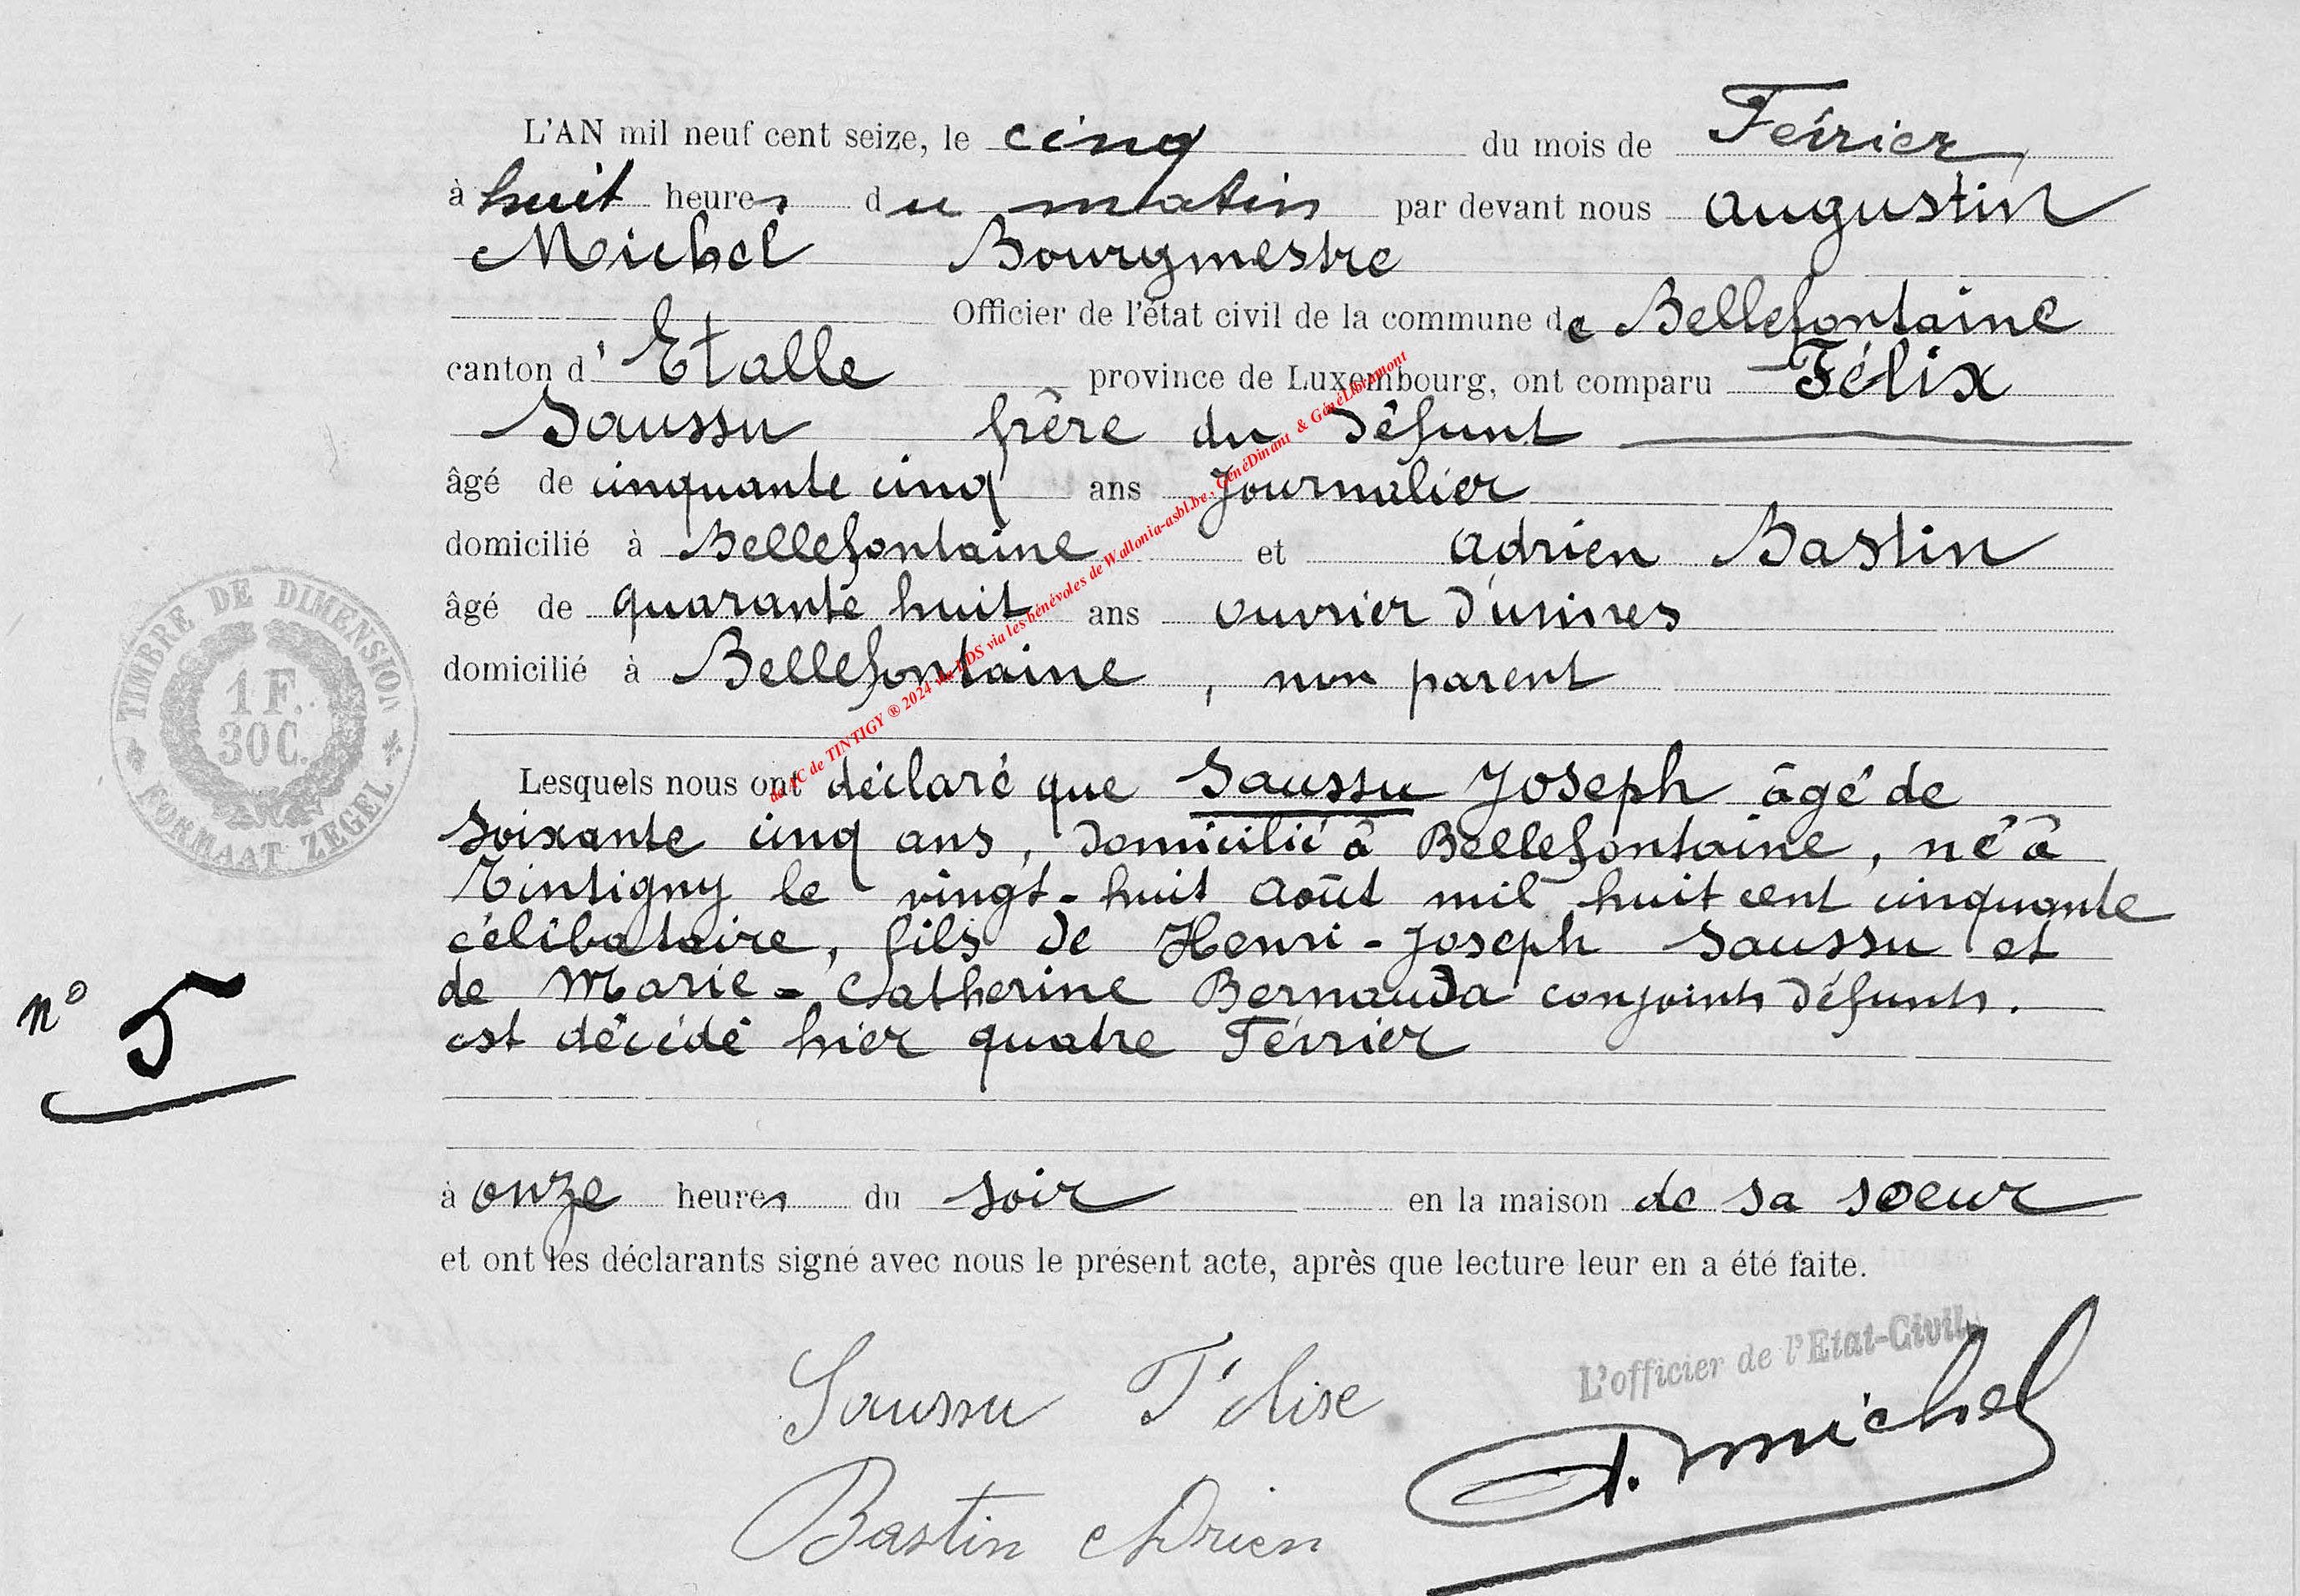 L'AN mil neuf cent seize, le cinq du mois de Février
à huit heures du matin par devant nous Augustin
Michel Bourgmestre
Officier de l'état civil de la commune de Bellefontaine
canton d' Etalle province de Luxembourg, ont comparu Félix
Saussu frère du défunt
âgé de cinquante cinq ans Journalier
domicilié à Bellefontaine et Adrien Bastin
âgé de quarante huit ans ouvrier d'usines
domicilié à Bellefontaine, non parent
Lesquels nous ont déclaré que Saussu Joseph âgé de
soixante cinq ans, domicilié à Bellefontaine, né à
Tintigny le vingt-huit Août mil huit cent cinquante
célibataire, fils de Henri-Joseph Saussu et
de Marie-Catherine Bernauda conjoints défunts.
est décédé hier quatre Février
n° 5
à onze heures du soir en la maison de sa soeur
et ont les déclarants signé avec nous le présent acte, après que lecture leur en a été faite.
L'officier de l'Etat-Civil,
Saussu Félise
A. Michel
Bastin Adrien
TIMBRE DE DIMENSION
1 F.
30 C.
FORMAAT ZEGEL
de TINTIGY ® 2024 via LDS via les bénévoles de Wallonia-asbl.be, GénéDinant & GénéLibramont